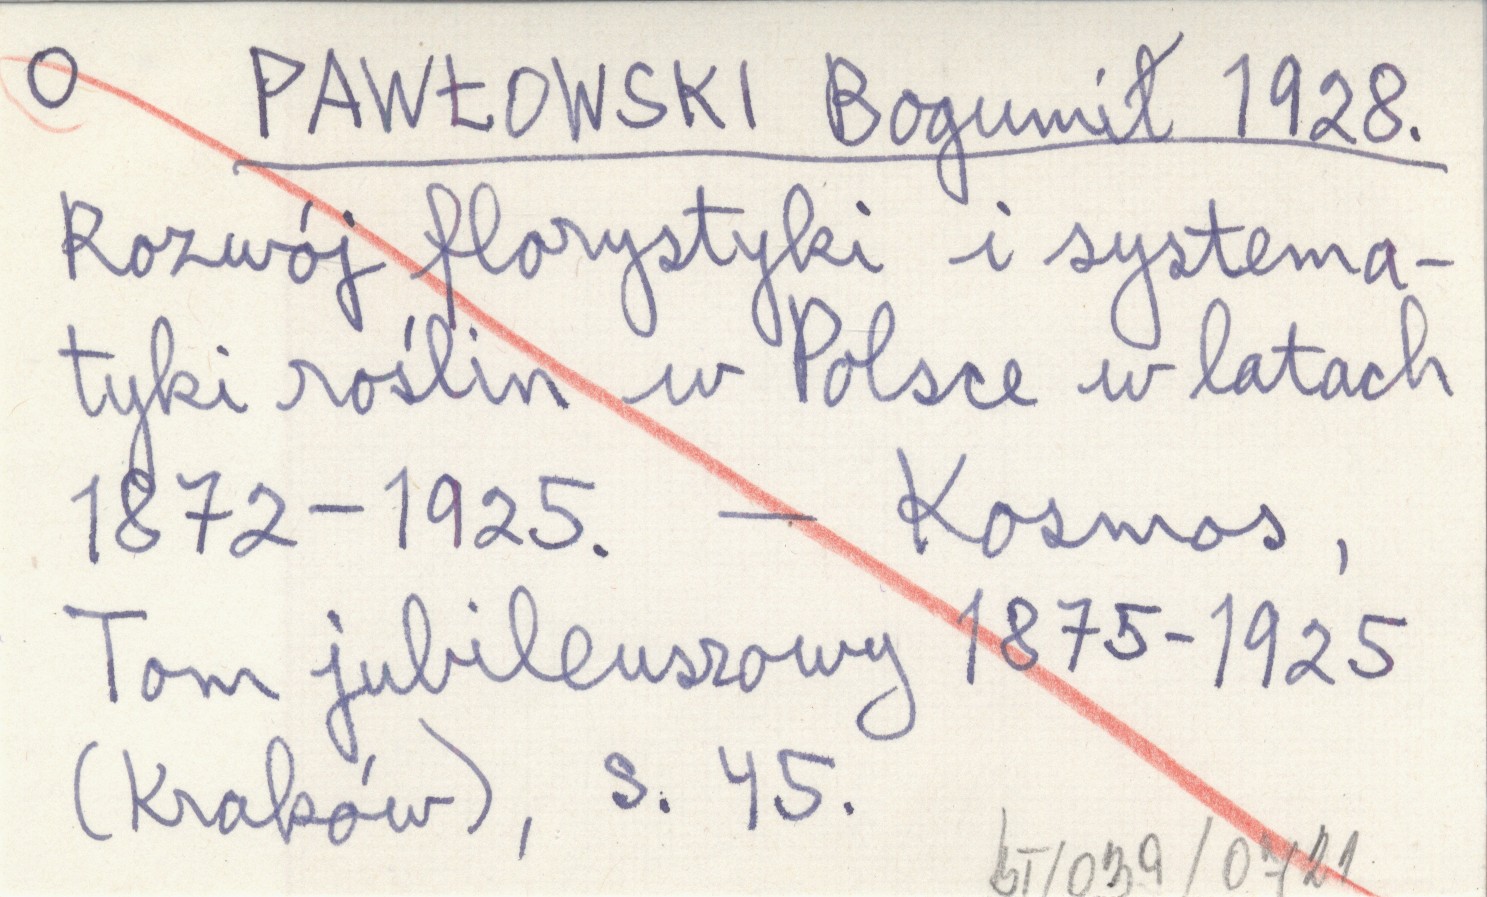 O PAWŁOWSKI Bogumił 1928.
Rozwój florystyki i systema-
tyki roślin w Polsce w latach
1872-1925. — Kosmos,
Tom jubileuszowy 1875-1925
(Kraków), s. 45.